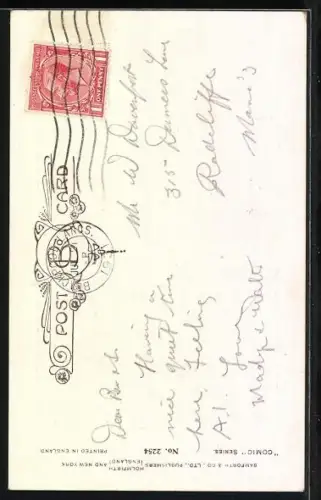 POST CARD
ONE PENNY
Mr W Davenport
315 Demers Lane
Radcliffe
Manc's
Dear Bro
Having a
nice quiet time
here Feeling
A.1. Your
Madge & Walt
BAMFORTH & CO., LTD., PUBLISHERS HOLMFIRTH (ENGLAND) AND NEW YORK
"COMIC" SERIES. No. 2254 PRINTED IN ENGLAND